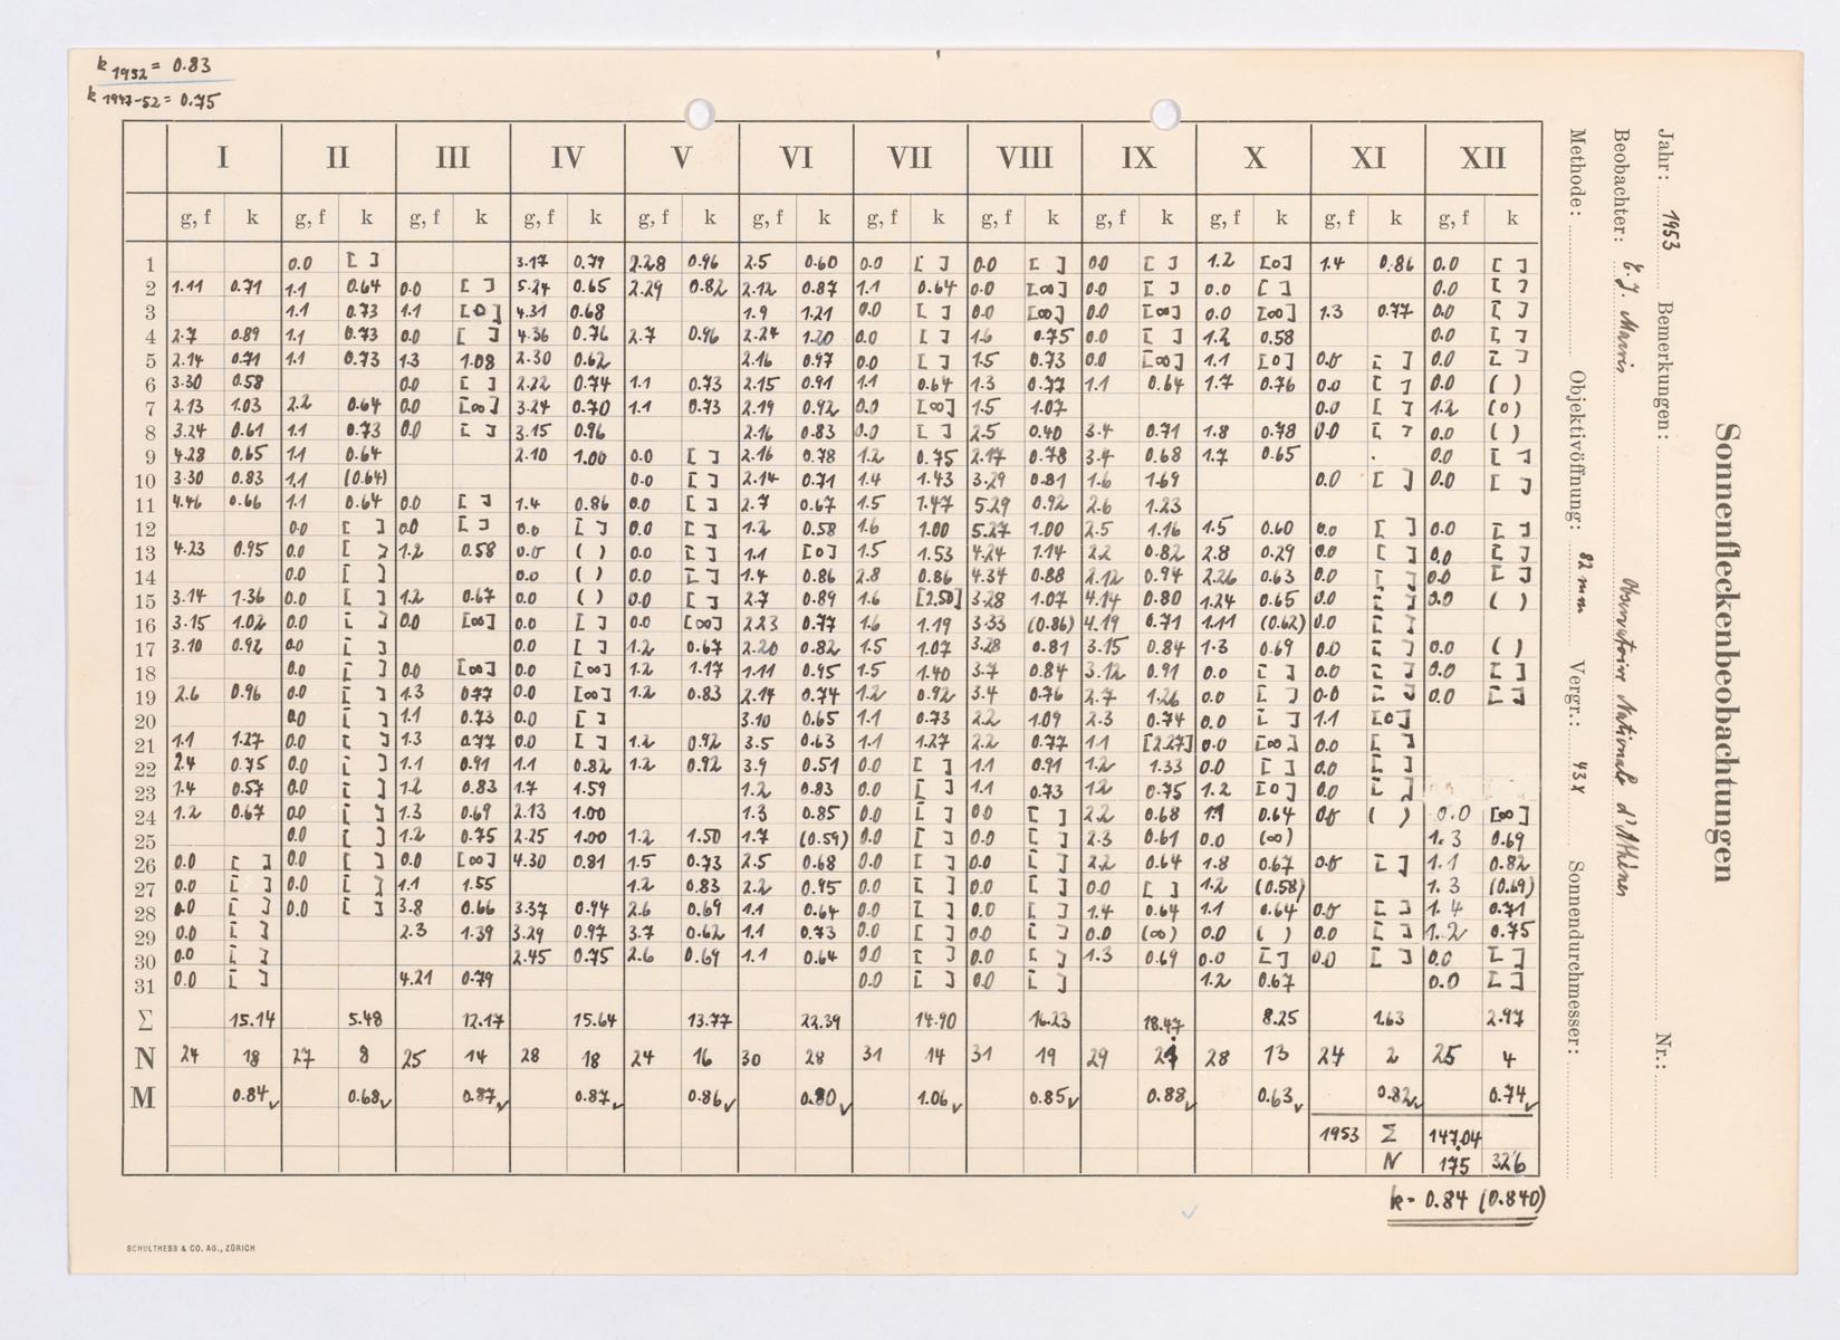 k 1952 = 0.83
k 1947-52 = 0.75
I II III IV V VI VII VIII IX X XI XII
g, f k g, f k g, f k g, f k g, f k g, f k g, f k g, f k g, f k g, f k g, f k g, f k
1 0.0 [ ] 3.17 0.79 2.28 0.96 2.5 0.60 0.0 [ ] 0.0 [ ] 0.0 [ ] 1.2 [0] 1.4 0.86 0.0 [ ]
2 1.11 0.71 1.1 0.64 0.0 [ ] 5.24 0.65 2.29 0.82 2.12 0.87 1.1 0.64 0.0 [∞] 0.0 [ ] 0.0 [ ] 0.0 [ ]
3 1.1 0.73 1.1 [0] 4.31 0.68 1.9 1.21 0.0 [ ] 0.0 [∞] 0.0 [∞] 0.0 [∞] 1.3 0.77 0.0 [ ]
4 2.7 0.89 1.1 0.73 0.0 [ ] 4.36 0.76 2.7 0.96 2.24 1.20 0.0 [ ] 1.6 0.75 0.0 [ ] 1.2 0.58 0.0 [ ]
5 2.14 0.71 1.1 0.73 1.3 1.08 2.30 0.62 2.16 0.97 0.0 [ ] 1.5 0.73 0.0 [∞] 1.1 [0] 0.0 [ ] 0.0 [ ]
6 3.30 0.58 0.0 [ ] 2.22 0.74 1.1 0.73 2.15 0.91 1.1 0.64 1.3 0.77 1.1 0.64 1.7 0.76 0.0 [ ] 0.0 ( )
7 2.13 1.03 2.2 0.64 0.0 [∞] 3.24 0.70 1.1 0.73 2.19 0.92 0.0 [∞] 1.5 1.07 0.0 [ ] 1.2 (0)
8 3.24 0.61 1.1 0.73 0.0 [ ] 3.15 0.96 2.16 0.83 0.0 [ ] 2.5 0.40 3.4 0.71 1.8 0.78 0.0 [ ] 0.0 ( )
9 4.28 0.65 1.1 0.64 2.10 1.00 0.0 [ ] 2.16 0.78 1.2 0.75 2.17 0.78 3.4 0.68 1.7 0.65 0.0 [ ]
10 3.30 0.83 1.1 (0.64) 0.0 [ ] 2.14 0.71 1.4 1.43 3.29 0.81 1.6 1.69 0.0 [ ] 0.0 [ ]
11 4.46 0.66 1.1 0.64 0.0 [ ] 1.4 0.86 0.0 [ ] 2.7 0.67 1.5 1.47 5.29 0.92 2.6 1.23
12 0.0 [ ] 0.0 [ ] 0.0 [ ] 0.0 [ ] 1.2 0.58 1.6 1.00 5.27 1.00 2.5 1.16 1.5 0.60 0.0 [ ] 0.0 [ ]
13 4.23 0.95 0.0 [ ] 1.2 0.58 0.0 ( ) 0.0 [ ] 1.1 [0] 1.5 1.53 4.24 1.14 2.2 0.82 2.8 0.29 0.0 [ ] 0.0 [ ]
14 0.0 [ ] 0.0 ( ) 0.0 [ ] 1.4 0.86 2.8 0.86 4.34 0.88 2.12 0.94 2.26 0.63 0.0 [ ] 0.0 [ ]
15 3.14 1.36 0.0 [ ] 1.2 0.67 0.0 ( ) 0.0 [ ] 2.7 0.89 1.6 [2.50] 3.28 1.07 4.14 0.80 1.24 0.65 0.0 [ ] 0.0 ( )
16 3.15 1.02 0.0 [ ] 0.0 [∞] 0.0 [ ] 0.0 [∞] 2.23 0.77 1.6 1.19 3.33 (0.86) 4.19 0.71 1.11 (0.62) 0.0 [ ]
17 3.10 0.92 0.0 [ ] 0.0 [ ] 1.2 0.67 2.20 0.82 1.5 1.07 3.28 0.81 3.15 0.84 1.3 0.69 0.0 [ ] 0.0 ( )
18 0.0 [ ] 0.0 [∞] 0.0 [∞] 1.2 1.17 1.11 0.95 1.5 1.40 3.7 0.84 3.12 0.91 0.0 [ ] 0.0 [ ] 0.0 [ ]
19 2.6 0.96 0.0 [ ] 1.3 0.77 0.0 [∞] 1.2 0.83 2.14 0.74 1.2 0.92 3.4 0.76 2.7 1.26 0.0 [ ] 0.0 [ ] 0.0 [ ]
20 0.0 [ ] 1.1 0.73 0.0 [ ] 3.10 0.65 1.1 0.73 2.2 1.09 2.3 0.74 0.0 [ ] 1.1 [0]
21 1.1 1.27 0.0 [ ] 1.3 0.77 0.0 [ ] 1.2 0.92 3.5 0.63 1.1 1.27 2.2 0.77 1.1 [2.27] 0.0 [∞] 0.0 [ ]
22 2.4 0.75 0.0 [ ] 1.1 0.91 1.1 0.82 1.2 0.92 3.9 0.51 0.0 [ ] 1.1 0.91 1.2 1.33 0.0 [ ] 0.0 [ ]
23 1.4 0.57 0.0 [ ] 1.2 0.83 1.7 1.59 1.2 0.83 0.0 [ ] 1.1 0.73 1.2 0.75 1.2 [0] 0.0 [ ]
24 1.2 0.67 0.0 [ ] 1.3 0.69 2.13 1.00 1.3 0.85 0.0 [ ] 0.0 [ ] 2.2 0.68 1.1 0.64 0.0 ( ) 0.0 [∞]
25 0.0 [ ] 1.2 0.75 2.25 1.00 1.2 1.50 1.7 (0.59) 0.0 [ ] 0.0 [ ] 2.3 0.61 0.0 (∞) 1.3 0.69
26 0.0 [ ] 0.0 [ ] 0.0 [∞] 4.30 0.81 1.5 0.73 2.5 0.68 0.0 [ ] 0.0 [ ] 2.2 0.64 1.8 0.67 0.0 [ ] 1.1 0.82
27 0.0 [ ] 0.0 [ ] 1.1 1.55 1.2 0.83 2.2 0.95 0.0 [ ] 0.0 [ ] 0.0 [ ] 1.2 (0.58) 1.3 (0.69)
28 0.0 [ ] 0.0 [ ] 3.8 0.66 3.37 0.94 2.6 0.69 1.1 0.64 0.0 [ ] 0.0 [ ] 1.4 0.64 1.1 0.64 0.0 [ ] 1.4 0.71
29 0.0 [ ] 2.3 1.39 3.29 0.97 3.7 0.62 1.1 0.73 0.0 [ ] 0.0 [ ] 0.0 (∞) 0.0 ( ) 0.0 [ ] 1.2 0.75
30 0.0 [ ] 2.45 0.75 2.6 0.69 1.1 0.64 0.0 [ ] 0.0 [ ] 1.3 0.69 0.0 [ ] 0.0 [ ] 0.0 [ ]
31 0.0 [ ] 4.21 0.79 0.0 [ ] 0.0 [ ] 1.2 0.67 0.0 [ ]
Σ 15.14 5.48 12.17 15.64 13.77 22.39 14.90 16.23 18.47 8.25 1.63 2.97
N 24 18 27 8 25 14 28 18 24 16 30 28 31 14 31 19 29 21 28 13 24 2 25 4
M 0.84 0.68 0.87 0.87 0.86 0.80 1.06 0.85 0.88 0.63 0.82 0.74
1953 Σ 147.04
N 175 326
k = 0.84 (0.840)
SCHULTHESS & CO. AG., ZÜRICH
Sonnenfleckenbeobachtungen
Jahr: 1953 Bemerkungen: Nr.:
Beobachter: Observatoire National d'Athènes
Methode: Objektivöffnung: 82 mm Vergr.: 43x Sonnendurchmesser: